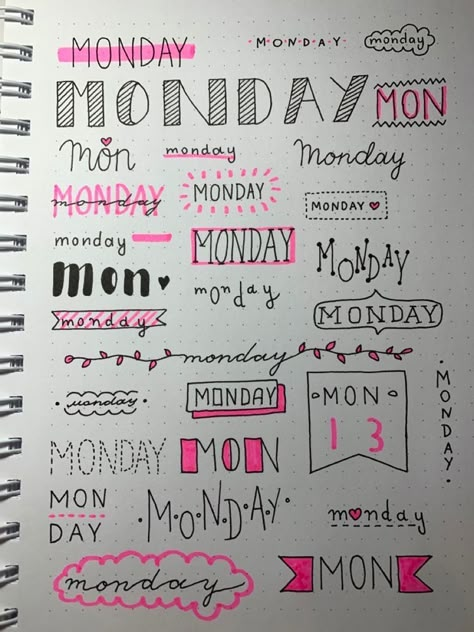 MONDAY
MONDAY
monday
MONDAY
MON
Mon
monday
Monday
MONDAY
monday
MONDAY
MONDAY ♥
monday
MONDAY
MONDAY
mon ♥
monday
monday
MONDAY
monday
monday
MONDAY
MON
13
MONDAY
MONDAY
MON
MON
DAY
·M·O·N·D·A·Y·
monday
monday
MON